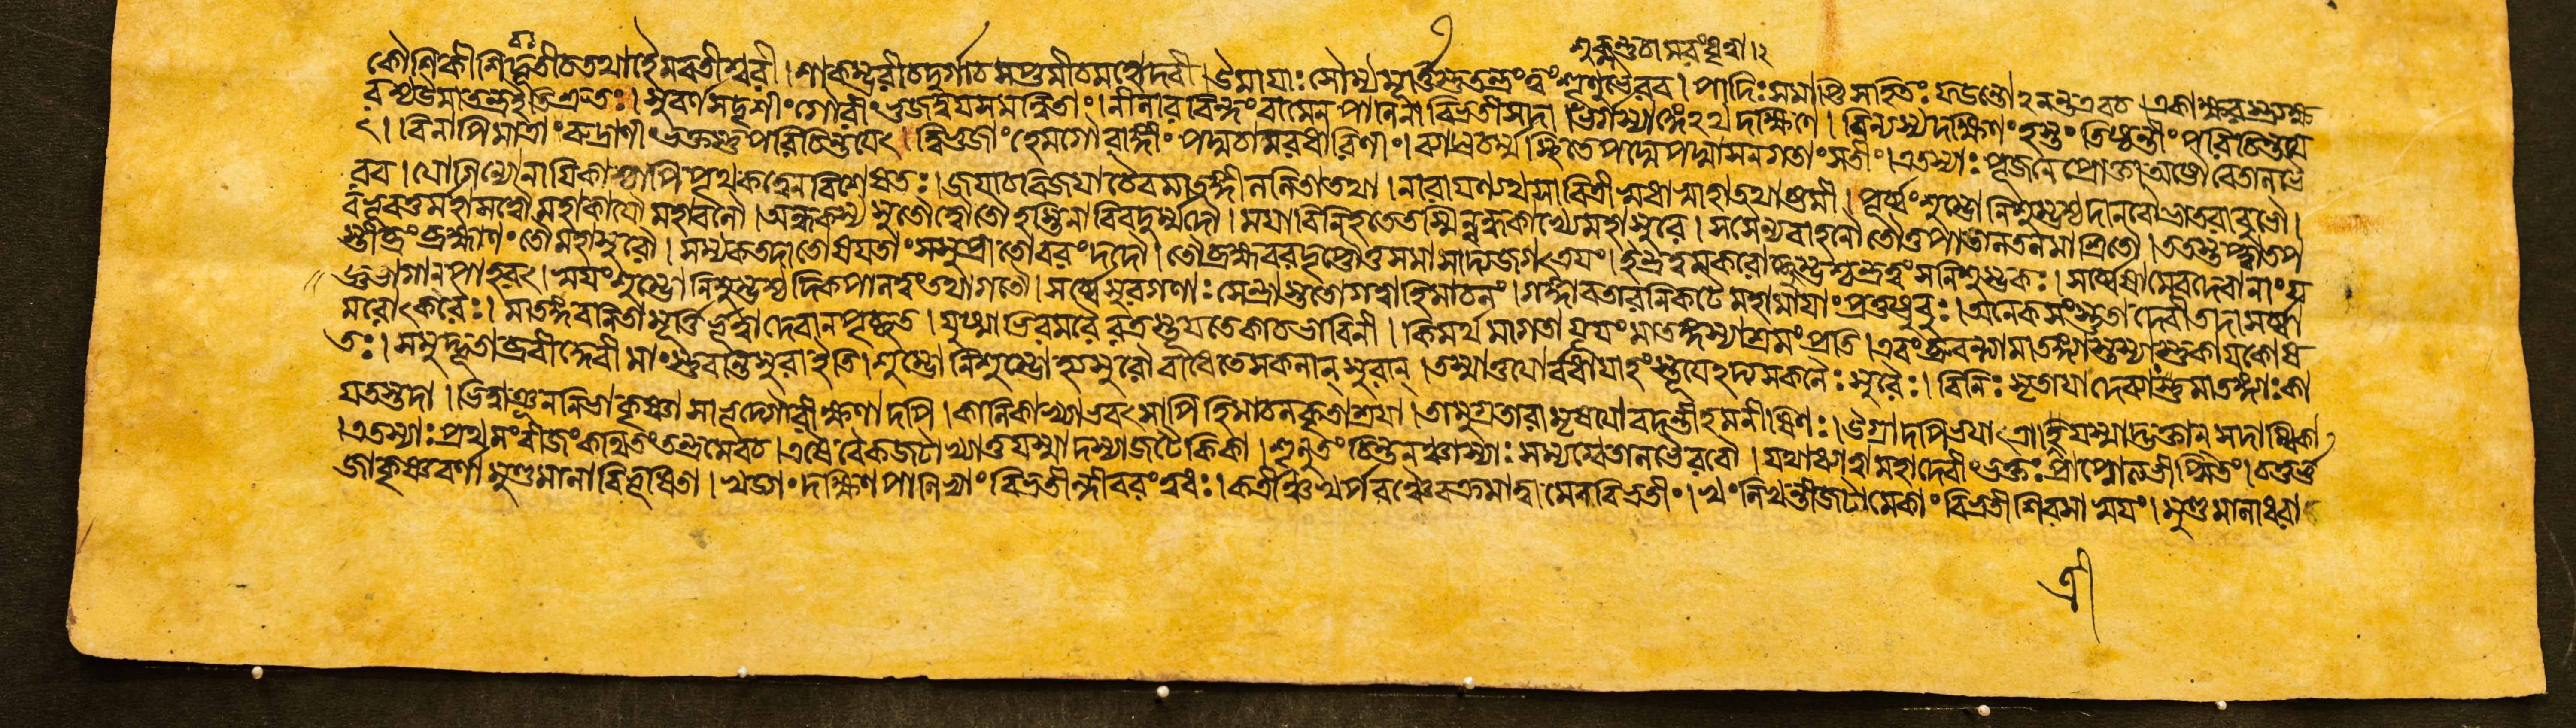 শুক্লঞ্চামরংধৃত্বা ২
কৌশিকী শিবদূতী চ তথা হৈমবতীশ্বরী । শাকম্ভরী চ দুর্গা চ সপ্তমী চ মহোদরী । উমায়াঃ সৌম্যমূর্ত্তেস্তু তন্ত্রং ত্বং শৃণু ভৈরব । পাদিঃ সমাপ্তিসহিতঃ ফডন্তো হনন্ত এব চ । একাক্ষরস্ত্র্যক্ষ
রশ্চ উমাতন্ত্রং ইতি শ্রুতঃ । সুবর্ণসদৃশীং গৌরীং ভুজদ্বয়সমন্বিতাং । নীলারবিন্দং বামেন পাণিনা বিভ্রতী সদা । ভর্গস্যাঙ্গে ২থ দক্ষিণে । বিন্যস্য দক্ষিণং হস্তং তিষ্ঠন্তীং পরিচিন্তয়ে
ৎ । বিনাপি মাত্রাং রুদ্রাণীং ভক্তস্তু পরিচিন্তয়েৎ । দ্বিভুজাং হেমগৌরাঙ্গীং পদ্মচামরধারিণীং । ব্যাঘ্রচর্ম্মস্থিতে পদ্মে পদ্মাসনগতাং সতীং । এতস্যাঃ পূজনে প্রোক্তা অষ্টৌ বেতালভৈ
রব । যোগিন্যো নায়িকাশ্চাপি পৃথক্ত্বেন বিশেষতঃ । জয়া চ বিজয়া চৈব মাতঙ্গী ললিতা তথা । নারায়ণ্যথ সাবিত্রী স্বধা স্বাহা তথাষ্টমী । পূর্ব্বং শুম্ভো নিশুম্ভশ্চ দানবৌ ভ্রাতরাবুভৌ ।
বভূবতুর্মহাসত্বৌ মহাকায়ৌ মহাবলৌ । অন্ধকস্য সুতৌ দ্বৌ তৌ হস্তিনাবিব দুর্ম্মদৌ । ময়া বিনিহতে তস্মিন্নন্ধকাখ্যে মহাসুরে । সসৈন্যবাহনৌ তৌ তু পাতালতলমাশ্রিতৌ । ততস্তপ্ত্বা তপ
স্তীব্রং ব্রহ্মাণং তৌ মহাসুরৌ । সম্যক তদা তোষয়তাং সসুপ্রীতো বরং দদৌ । তৌ ব্রহ্মবরদৃপ্তৌ তু সমাসাদ্য জগত্রয়ং । ইন্দ্রত্বমকরোচ্ছুম্ভশ্চন্দ্রত্বং স নিশুম্ভকঃ । সর্ব্বেষামেব দেবানাং য
জ্ঞভাগানপাহরৎ । স্বয়ং শুম্ভো নিশুম্ভশ্চ দিকপালত্বং তথাগতৌ । সর্ব্বে সুরগণাঃ সেন্দ্রাস্ততো গত্বা হিমাচলং । গঙ্গাবতারনিকটে মহামায়াং প্রতুষ্টুবুঃ । অনেকসংস্তুতা দেবী তদা সর্ব্বা
মরোৎকরৈঃ । মাতঙ্গবনিতামূর্ত্তির্ভূত্বা দেবানপৃচ্ছত । যুষ্মাভিরমরৈরত্র স্তূয়তে কা চ ভাবিনী । কিমর্থমাগতা যূয়ং মাতঙ্গস্যাশ্রমং প্রতি । এবং ব্রুবন্ত্যা মাতঙ্গ্যাস্তস্যাস্তু কায়কোষ
তঃ । সমুদ্ভূতাব্রবীদ্দেবী মাং স্তুবন্তি সুরা ইতি । শুম্ভো নিশুম্ভো হ্যসুরৌ বাধেতে সকলান্ সুরান্ । তস্মাত্তয়োর্ব্বধায়াহং স্তূয়ে ২দ্য সকলৈঃ সুরৈঃ । বিনিঃসৃতায়াং দেব্যাস্তু মাতঙ্গ্যাঃ কা
য়তস্তদা । ভিন্নাঞ্জননিভা কৃষ্ণা সাভূদ্গৌরী ক্ষণাদপি । কালিকাখ্যাভবৎ সাপি হিমাচলকৃতাশ্রয়া । তামুগ্রতারামৃষয়ো বদন্তীহ মনীষিণঃ । উগ্রাদপি ভয়াৎ ত্রাতি যস্মাদ্ভক্তান্ সদাম্বিকা
। এতস্যাঃ প্রথমং বীজং কথিতং তন্ত্রমেব চ । এষৈবৈকজটাখ্যা তু যস্মাত্তস্যা জটৈকিকা । শৃণুতং চিন্তনঞ্চাস্যাঃ সম্যগ্বেতালভৈরবৌ । যথা ধ্যাত্বা মহাদেবীং ভক্তঃ প্রাপ্নোত্যভীপ্সিতং । চতুর্ভু
জা কৃষ্ণবর্ণা মুণ্ডমালাবিভূষিতা । খড়্গং দক্ষিণপাণিভ্যাং বিভ্রতীন্দীবরং ত্বধঃ । কর্ত্রীঞ্চ খর্পরঞ্চৈব ক্রমাদ্বামেন বিভ্রতীং । খং লিখন্তী জটামেকাং বিভ্রতী শিরসা স্বয়ং । মুণ্ডমালাধরা
শ্রী